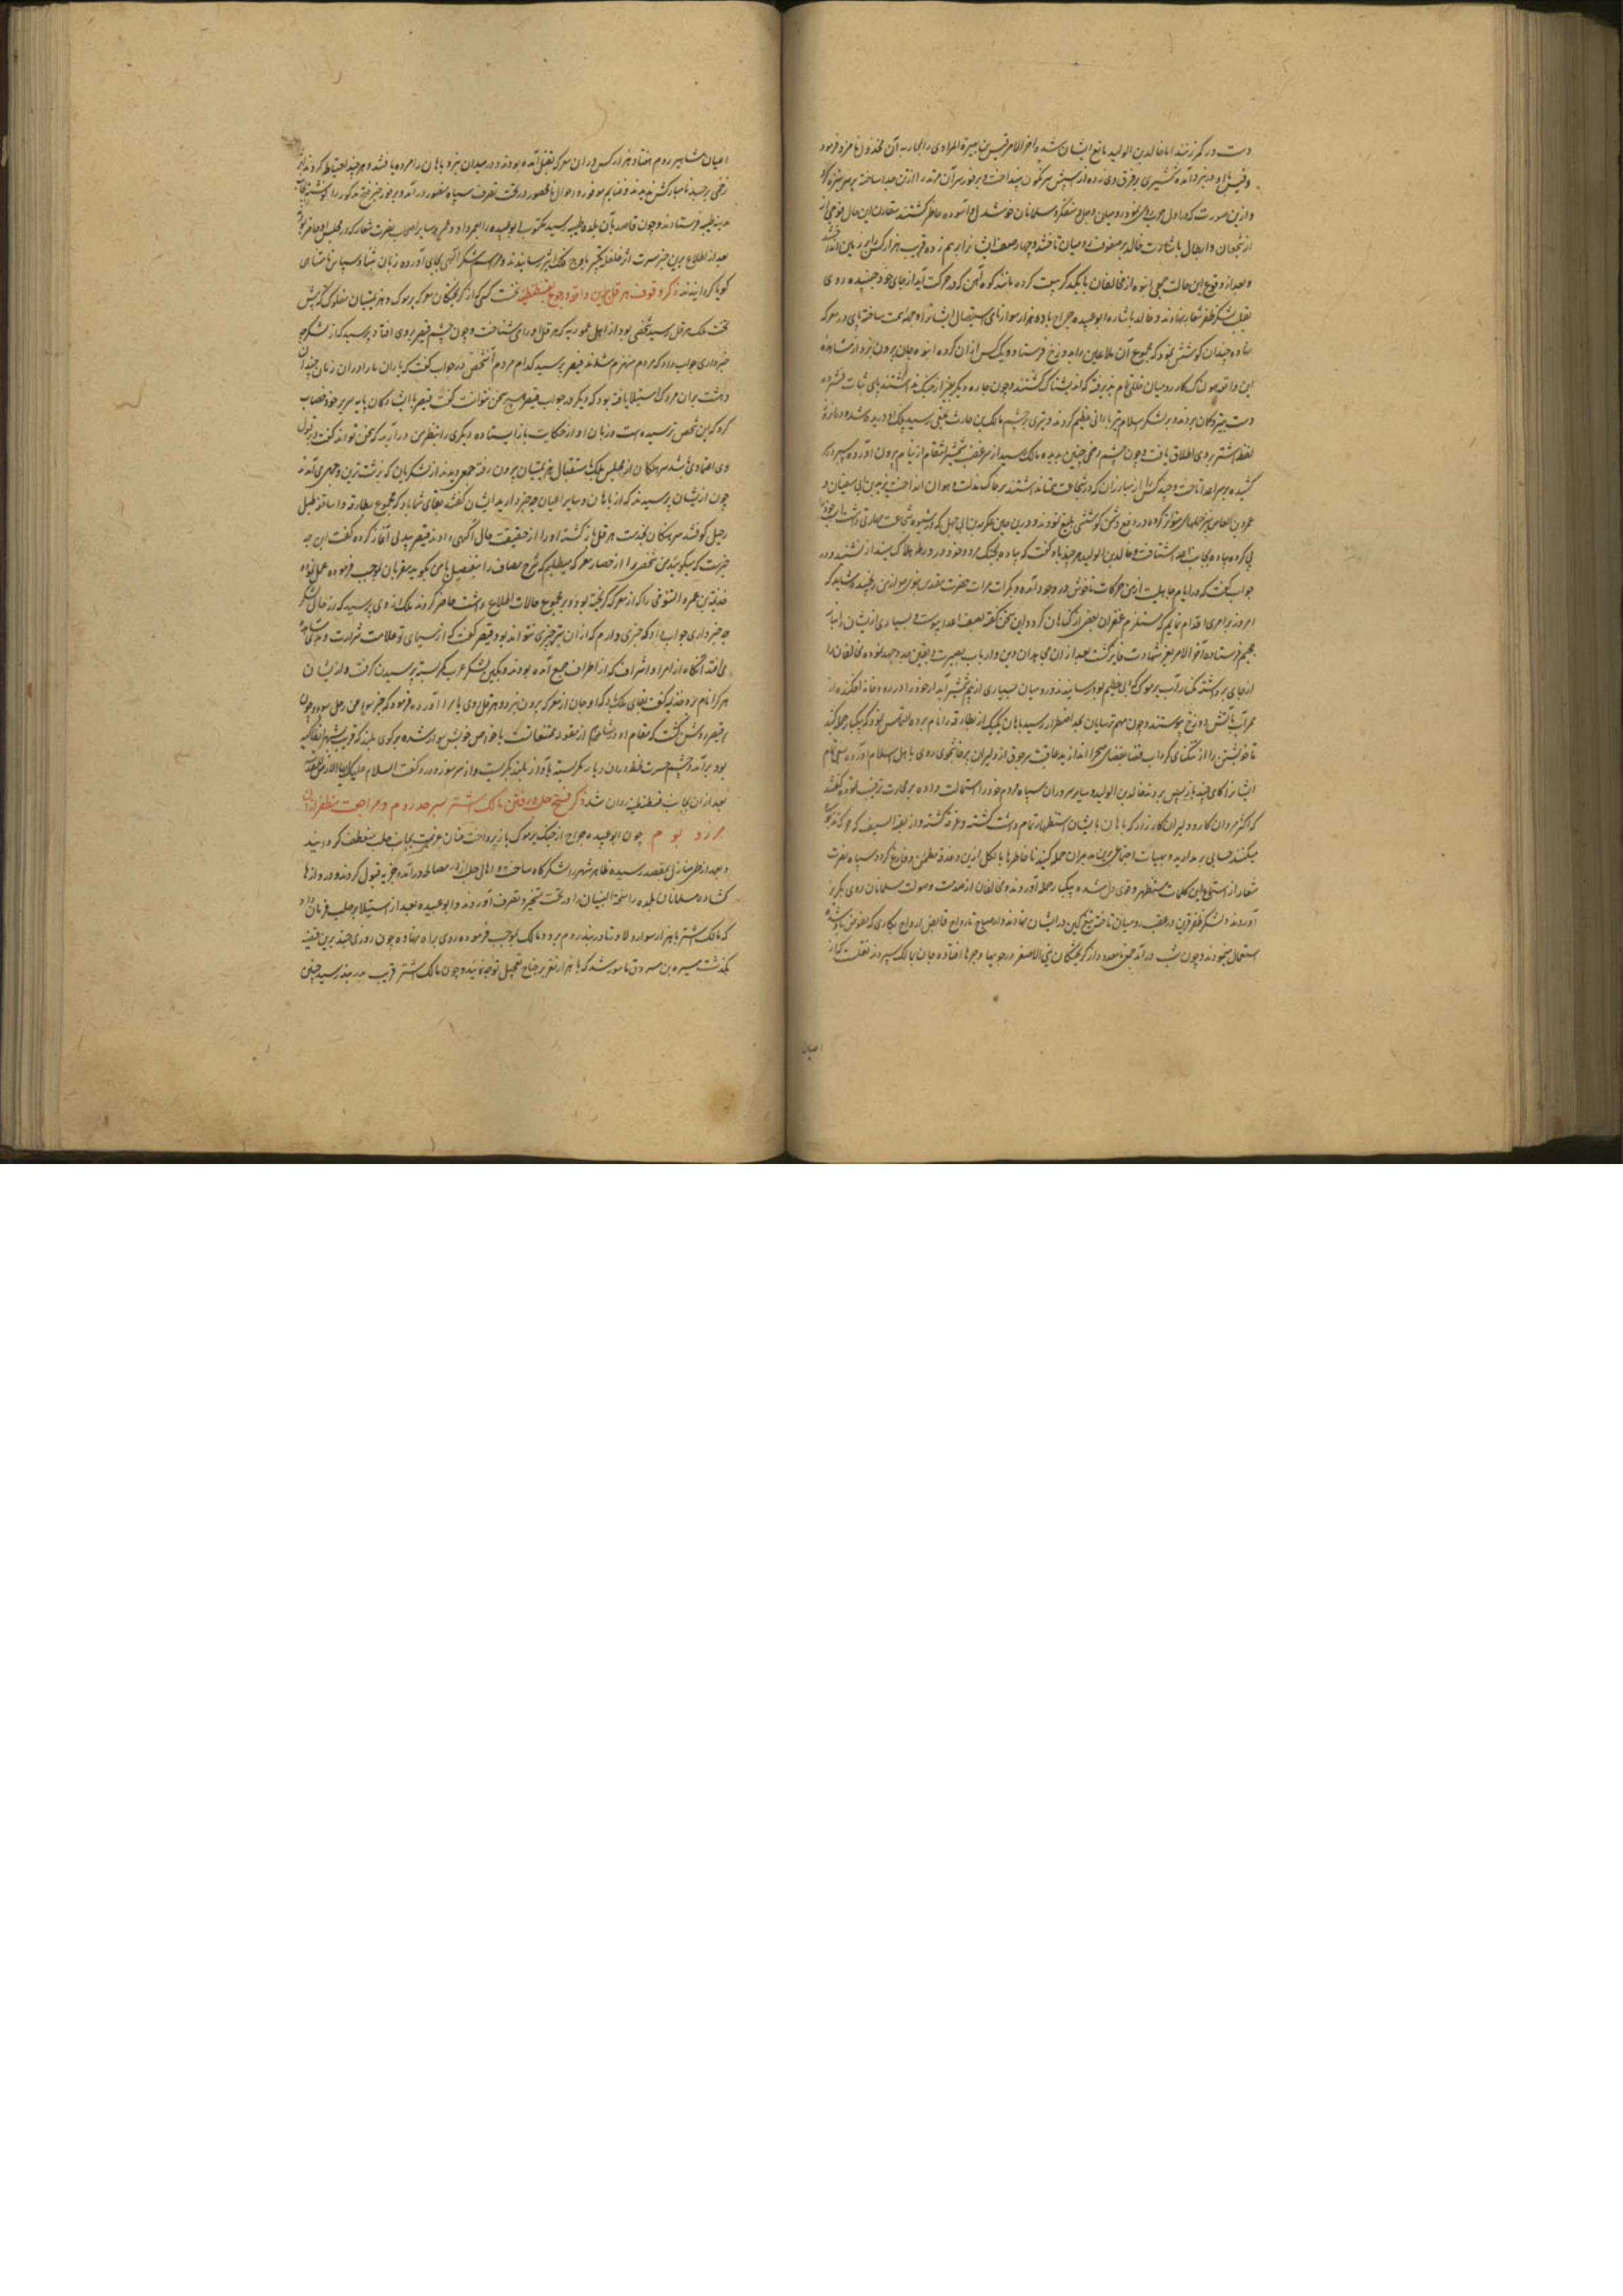 دست در کمر زنند اما خالد بن الولید مانع ایشان شده و آخر الامر قیس بن هبیرة المرادی را بمحاربه آن مخذول نامزد فرمود
و قیس در نبرد آمده شمشیری بر فرق وی زده از اسپش سرنگون بینداخت و بر فور سر آن را از تن جدا ساخته بر سر نیزه کرد
و ازین صورت که در اول حرب روی نمود رومیان و متفکر و مسلمانان خوشدل و آسوده خاطر گشتند مقارن این حال فوجی از
از شجعان و ابطال باشارت خالد بر صفوف رومیان تاختند و چهار صف ایشانرا بر هم زده قریب هزار کس را بر زمین
و بعد از وقوع این حالت جمعی انبوه از مخالفان با یکدیگر بیعت کرده مانند کوه آهن که در حرکت آید از جای خود جنبیده روی
بقلب لشکر ظفر شعار نهادند و خالد باشاره ابو عبیده جراح با ده هزار سوار نامی استیصال ایشانرا همت ساخته پای در معرکه
نهاده چندان کوشش نمود که مجموع آن ملاعین را بدوزخ فرستاد و یک کس از آن گروه انبوه جان بیرون نبرد و از مشاهده
این واقعه هولناک کار رومیان خللی تام پذیرفته اندیشناک گشتند و چون چاره دیگر بغیر از جنگ نداشتند پای ثبات فشرده
دست به تیر و کمان بردند و بر لشکر اسلام تیر بارانی عظیم کردند و تیری بر چشم مالک بن حارث نخعی رسید پلک او دریده شد و
لفظ اشتر بر وی اطلاق یافت و چون چشم زخمی چنین بدیده مالک رسید از سر غضب شمشیر انتقام از نیام بیرون آورده سپر در
کشیده بر سر اعدا تاخت و چند کس را از مبارزان که در شجاعت همتا نداشتند بر خاک مذلت و هوان انداخت یزید بن ابی سفیان و
عمرو بن العاص نیز حملهای متواتر کرده در دفع دشمن کوشش بلیغ نمودند و درین حین عکرمه بن ابی جهل که در شیوه شجاعت مهارتی داشت اسب خود را
پی کرده پیاده بجانب اعدا شتافت و خالد بن الولید هر چند با او گفت که پیاده بجنگ مرو و خود را در ورطه هلاک مینداز نشنید و در
جواب گفت که در ایام جاهلیت از من حرکات ناخوش در وجود آمده و بکرات و مرات حضرت مقدس نبوی از من رنجیده شاید که
امروز بر امری اقدام نمایم که مستلزم غفران بعضی از گناهان گردد این سخن گفته بصف اعدا پیوست و بسیاری از ایشان را بنار
جحیم فرستاده آخر الامر بعز شهادت فایز گشت بعد از آن مجاهدان دین و ارباب بصیرت و یقین جد و جهد نموده مخالفان را
از جای برداشته بکنار آب یرموک که آبی عظیم بود رسانیدند و رومیان بسیاری از بیم شمشیر آبدار خود را در رودخانه افکنده از
ممر آب بآتش دوزخ پیوستند و چون مهم ترسایان بحد اضطرار رسید باهان یکیک از بطارقه را نام برده التماس نمود که بیکبار حمله کنند
تا خویشتن را از تنگنای گرداب فنا بفضای صحرا اندازند عاقبت هر جوق از دلیران پرخاشجوی روی باهل اسلام آورده سعی تمام
ایشانرا گامی چند بازپس بردند خالد بن الولید و سایر سروران سپاه مردم خود را استمالت داده بر محاربت ترغیب نموده گفتند
که اکثر مردان کار و دلیران کارزار که باهان بایشان استظهار تمام داشت کشته و خسته گشته و از بقیة السیف که
میکنند حسابی بر مدارید و بهیات اجتماعی برین مدبران حمله کنید تا خاطرها بالکل ازین دغدغه مطمئن و فارغ گردد سپاه نصرت
شعار از استماع این کلمات مستظهر و قوی دل شده بیکبار حمله آوردند و مخالفان از صدمت و صولت مسلمانان روی بگریز
آوردند و لشکر ظفر قرین در عقب رومیان تاخته تیغ کین در ایشان نهادند و از صباح تا رواح قابض ارواح بکاری که مفوض باوست
استعمال مینمودند و چون شب درآمد جمعی نامعدود از گریختگان بنی الاصفر در جویها و جرها افتاده جان بمالک سپردند نقلست که از
اعیان
اعیان و مشاهیر روم هفتاد هزار کس در آن معرکه بقتل آمده بودند و در میدان نبرد باهان را مرده یافتند و هر چند احتیاط کردند اثر
زخمی بر جسد نامبارکش ندیدند و غنایم موفور و اموال نامحصور در تحت تصرف سپاه منصور درآمد و بر فور خبر فتح مذکور را نوشته بجانب
مدینه طیبه فرستادند و چون قاصد بآن بلده طیبه رسید مکتوب ابو عبیده را بعمر داد و عمر و سایر اصحاب نصرت شعار که در مجلس او حاضر بودند
بعد از اطلاع برین خبر مسرت اثر غلغله تکبیر باوج فلک اثیر رسانیدند و مراسم شکر الهی بجای آورده زبان بثنا و سپاس نامتناهی
گویا گردانیدند ذکر وقوف هرقل برین واقعه و رجوع بقسطنطنیه نخست کسی که از گریختگان معرکه یرموک و هزیمتیان مفلوک که پیش
تخت ملک هرقل رسید شخصی بود از اهل عموریه که هرقل او را می شناخت و چون چشم قیصر بر وی افتاد پرسید که از لشکر چه
خبر داری جواب داد که مردم منهزم شدند قیصر پرسید کدام مردم آنشخص در جواب گفت که یاران ما را در آن زمان چندان
دهشت بران مردک استیلا یافته بود که دیگر در جواب قیصر هیچ سخن نتوانست گفت قیصر با ایستادگان پایه سریر خود خطاب
کرد که این شخص ترسیده است و زبان او از حکایت باز ایستاده دیگری را بنظر من درآرید که سخن تواند گفت و بر قول
وی اعتمادی باشد سرهنگان از مجلس ملک باستقبال هزیمتیان بیرون رفته جمعی دیدند از لشکریان که بزشت ترین وجهی می آمدند
چون از ایشان پرسیدند که از باهان و سایر اعیان چه خبر دارید ایشان گفتند بقای شما باد که مجموع بطارقه و اساقفه طبل
رحیل کوفتند سرهنگان بخدمت هرقل بازگشته او را از حقیقت حال آگهی دادند قیصر بیدلی آغاز کرده گفت این چه
خبرست که میگویید من شخصی را از حضار معرکه میطلبم که شرح مصاف را بتفصیل با من بگوید مقربان بموجب فرموده عمل نموده
حذیفة بن عمرو التنوخی را که از معرکه گریخته بود و بر مجموع حالات اطلاع داشت حاضر کردند ملک از وی پرسید که از حال لشکر
چه خبر داری جواب داد که خبری دارم که از آن بتر خبری نتواند بود قیصر گفت که از سیمای تو علامت شرارت
می افتد آنگاه از امرا و اشراف که از اطراف جمع آمده بودند و بکین لشکر عرب کمر بسته پرسیدن گرفت و از ایشان
هر کرا نام برد حذیفه گفت بقای ملک باد که او جان از معرکه بیرون نبرد و هرقل روی بامرا آورده فرمود که
بر قیصر روشن گشت که مقام او در شام از مقوله ممتنعاتست با خواص خویش سوار شده بر کوهی بلند که قریب شهر انطاکیه
بود برآمد و بچشم حسرت نظر در آن دیار نگریسته بآواز بلند بگریست و از سر سوز و درد گفت السلام علیک یا ارض
بعد از آن بجانب قسطنطنیه روان شد ذکر فتح حلب و رفتن مالک اشتر بسرحد روم و مراجعت مظفر از آن
مرز و بوم چون ابو عبیده جراح از جنگ یرموک باز پرداخت عنان عزیمت بجانب حلب منعطف گردانید
و بعد از طی منازل بمقصد رسیده ظاهر شهر را لشکرگاه ساخت و اهالی حلب از در مصالحه درآمده جزیه قبول کردند و دروازها
گشاده مسلمانان بلده راسخة البنیان را در تحت تسخیر و تصرف آوردند و ابو عبیده بعد از استیلا بر حلب فرمان داد
که مالک اشتر با هزار سوار دلاور تا دربند روم برود مالک بموجب فرموده روی براه نهاده چون روزی چند برین قضیه
بگذشت میسره بن مسروق مامور شد که با هزار نفر بر جناح تعجیل توجه نماید و چون مالک اشتر قریب بدربند رسید چنین